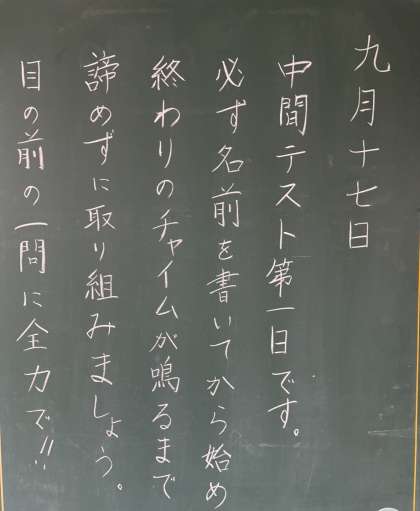 九月十七日
中間テスト第一日です。
必ず名前を書いてから始め
終わりのチャイムが鳴るまで
諦めずに取り組みましょう。
目の前の一問に全力で!!